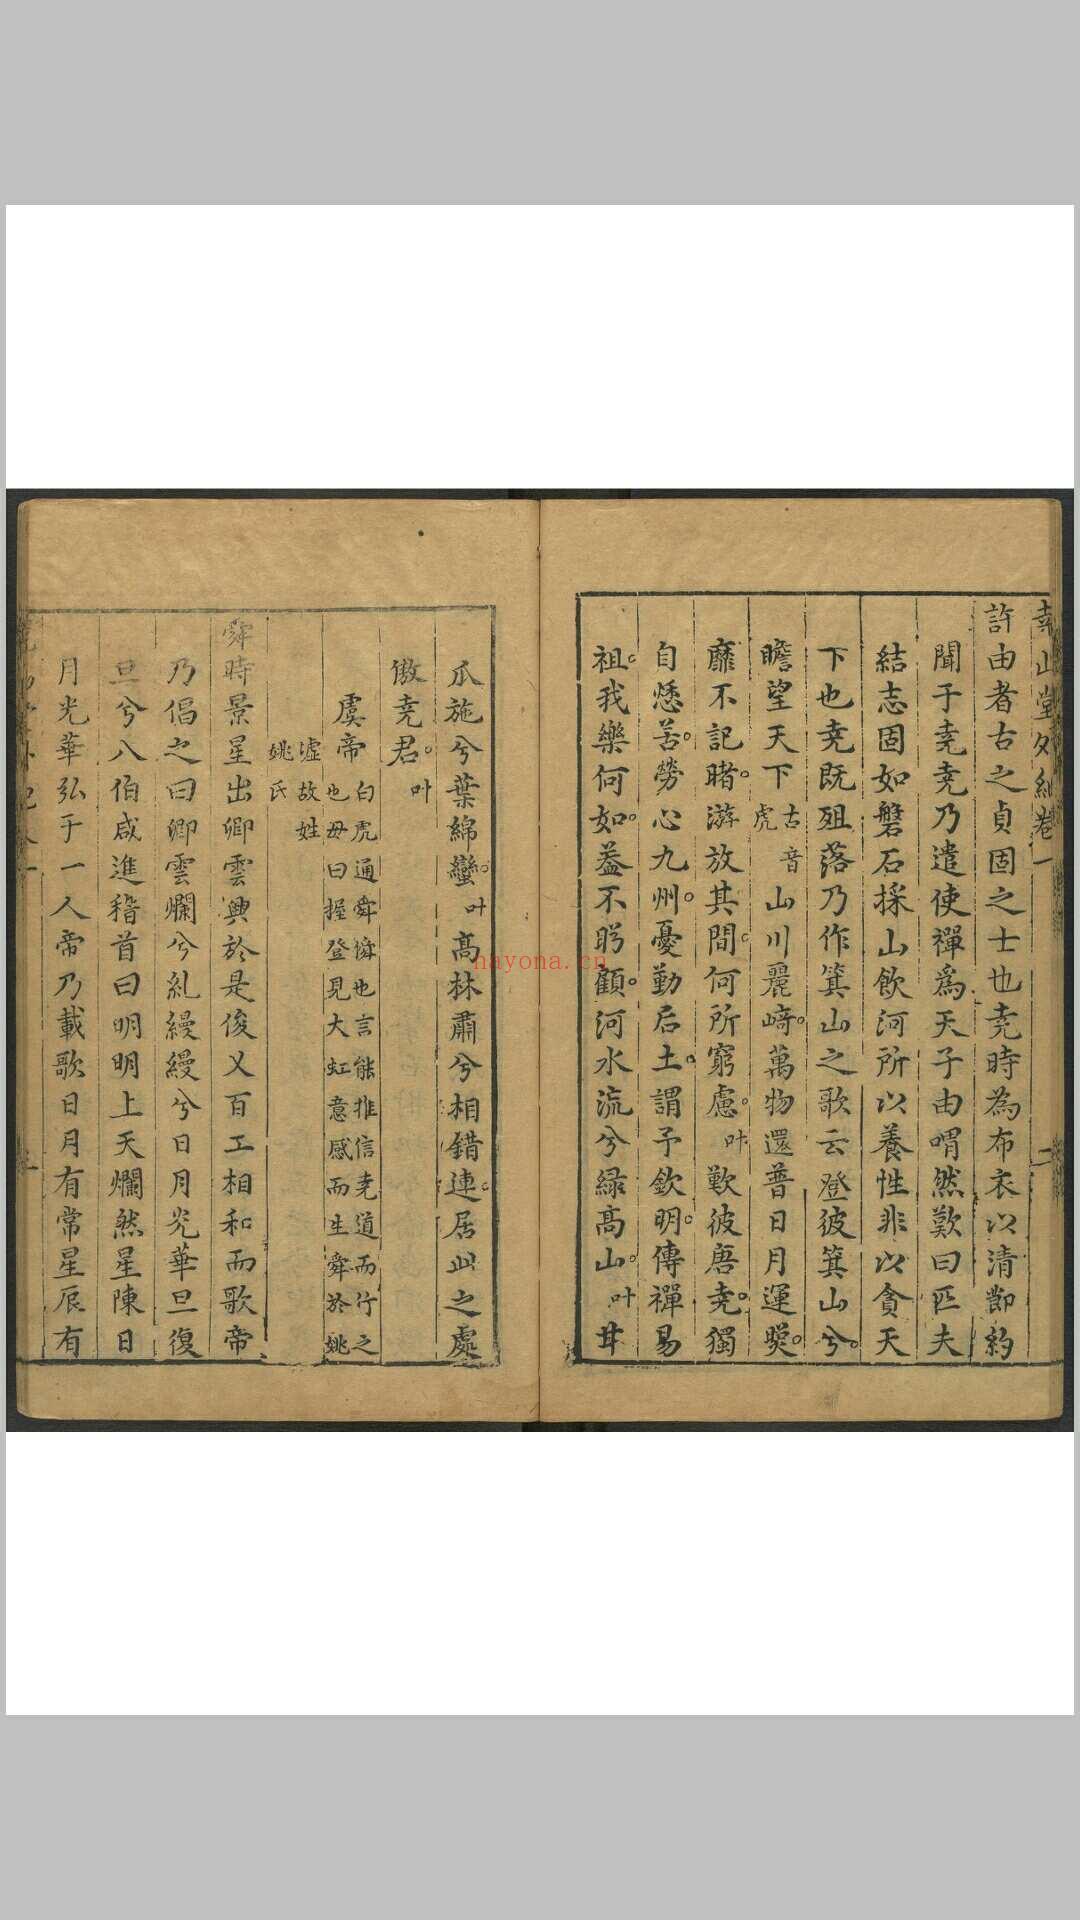 堯山堂外紀卷一 二
許由者古之貞固之士也堯時為布衣以清節約
聞于堯堯乃遣使禪爲天子由喟然歎曰匹夫
結志固如磐石採山飲河所以養性非以貪天
下也堯既殂落乃作箕山之歌云登彼箕山兮
瞻望天下古音虎山川麗﨑萬物還普日月運照
靡不記睹游放其間何所窮慮叶歎彼唐堯獨
自愁苦勞心九州憂勤后土謂予欽明傳禪易
祖我樂何如葢不盻顧河水流兮緑高山叶甘
瓜施兮葉綿蠻叶高林肅兮相錯連居此之處
傲堯君叶
虞帝
白虎通舜僢也言能推信堯道而行之
也母曰握登見大虹意感而生舜於姚
墟故姓
姚氏
舜時景星出卿雲興於是俊乂百工相和而歌帝
乃倡之曰卿雲爛兮糺縵縵兮日月光華旦復
旦兮八伯咸進稽首曰明明上天爛然星陳日
月光華弘于一人帝乃載歌日月有常星辰有
hayona.cn